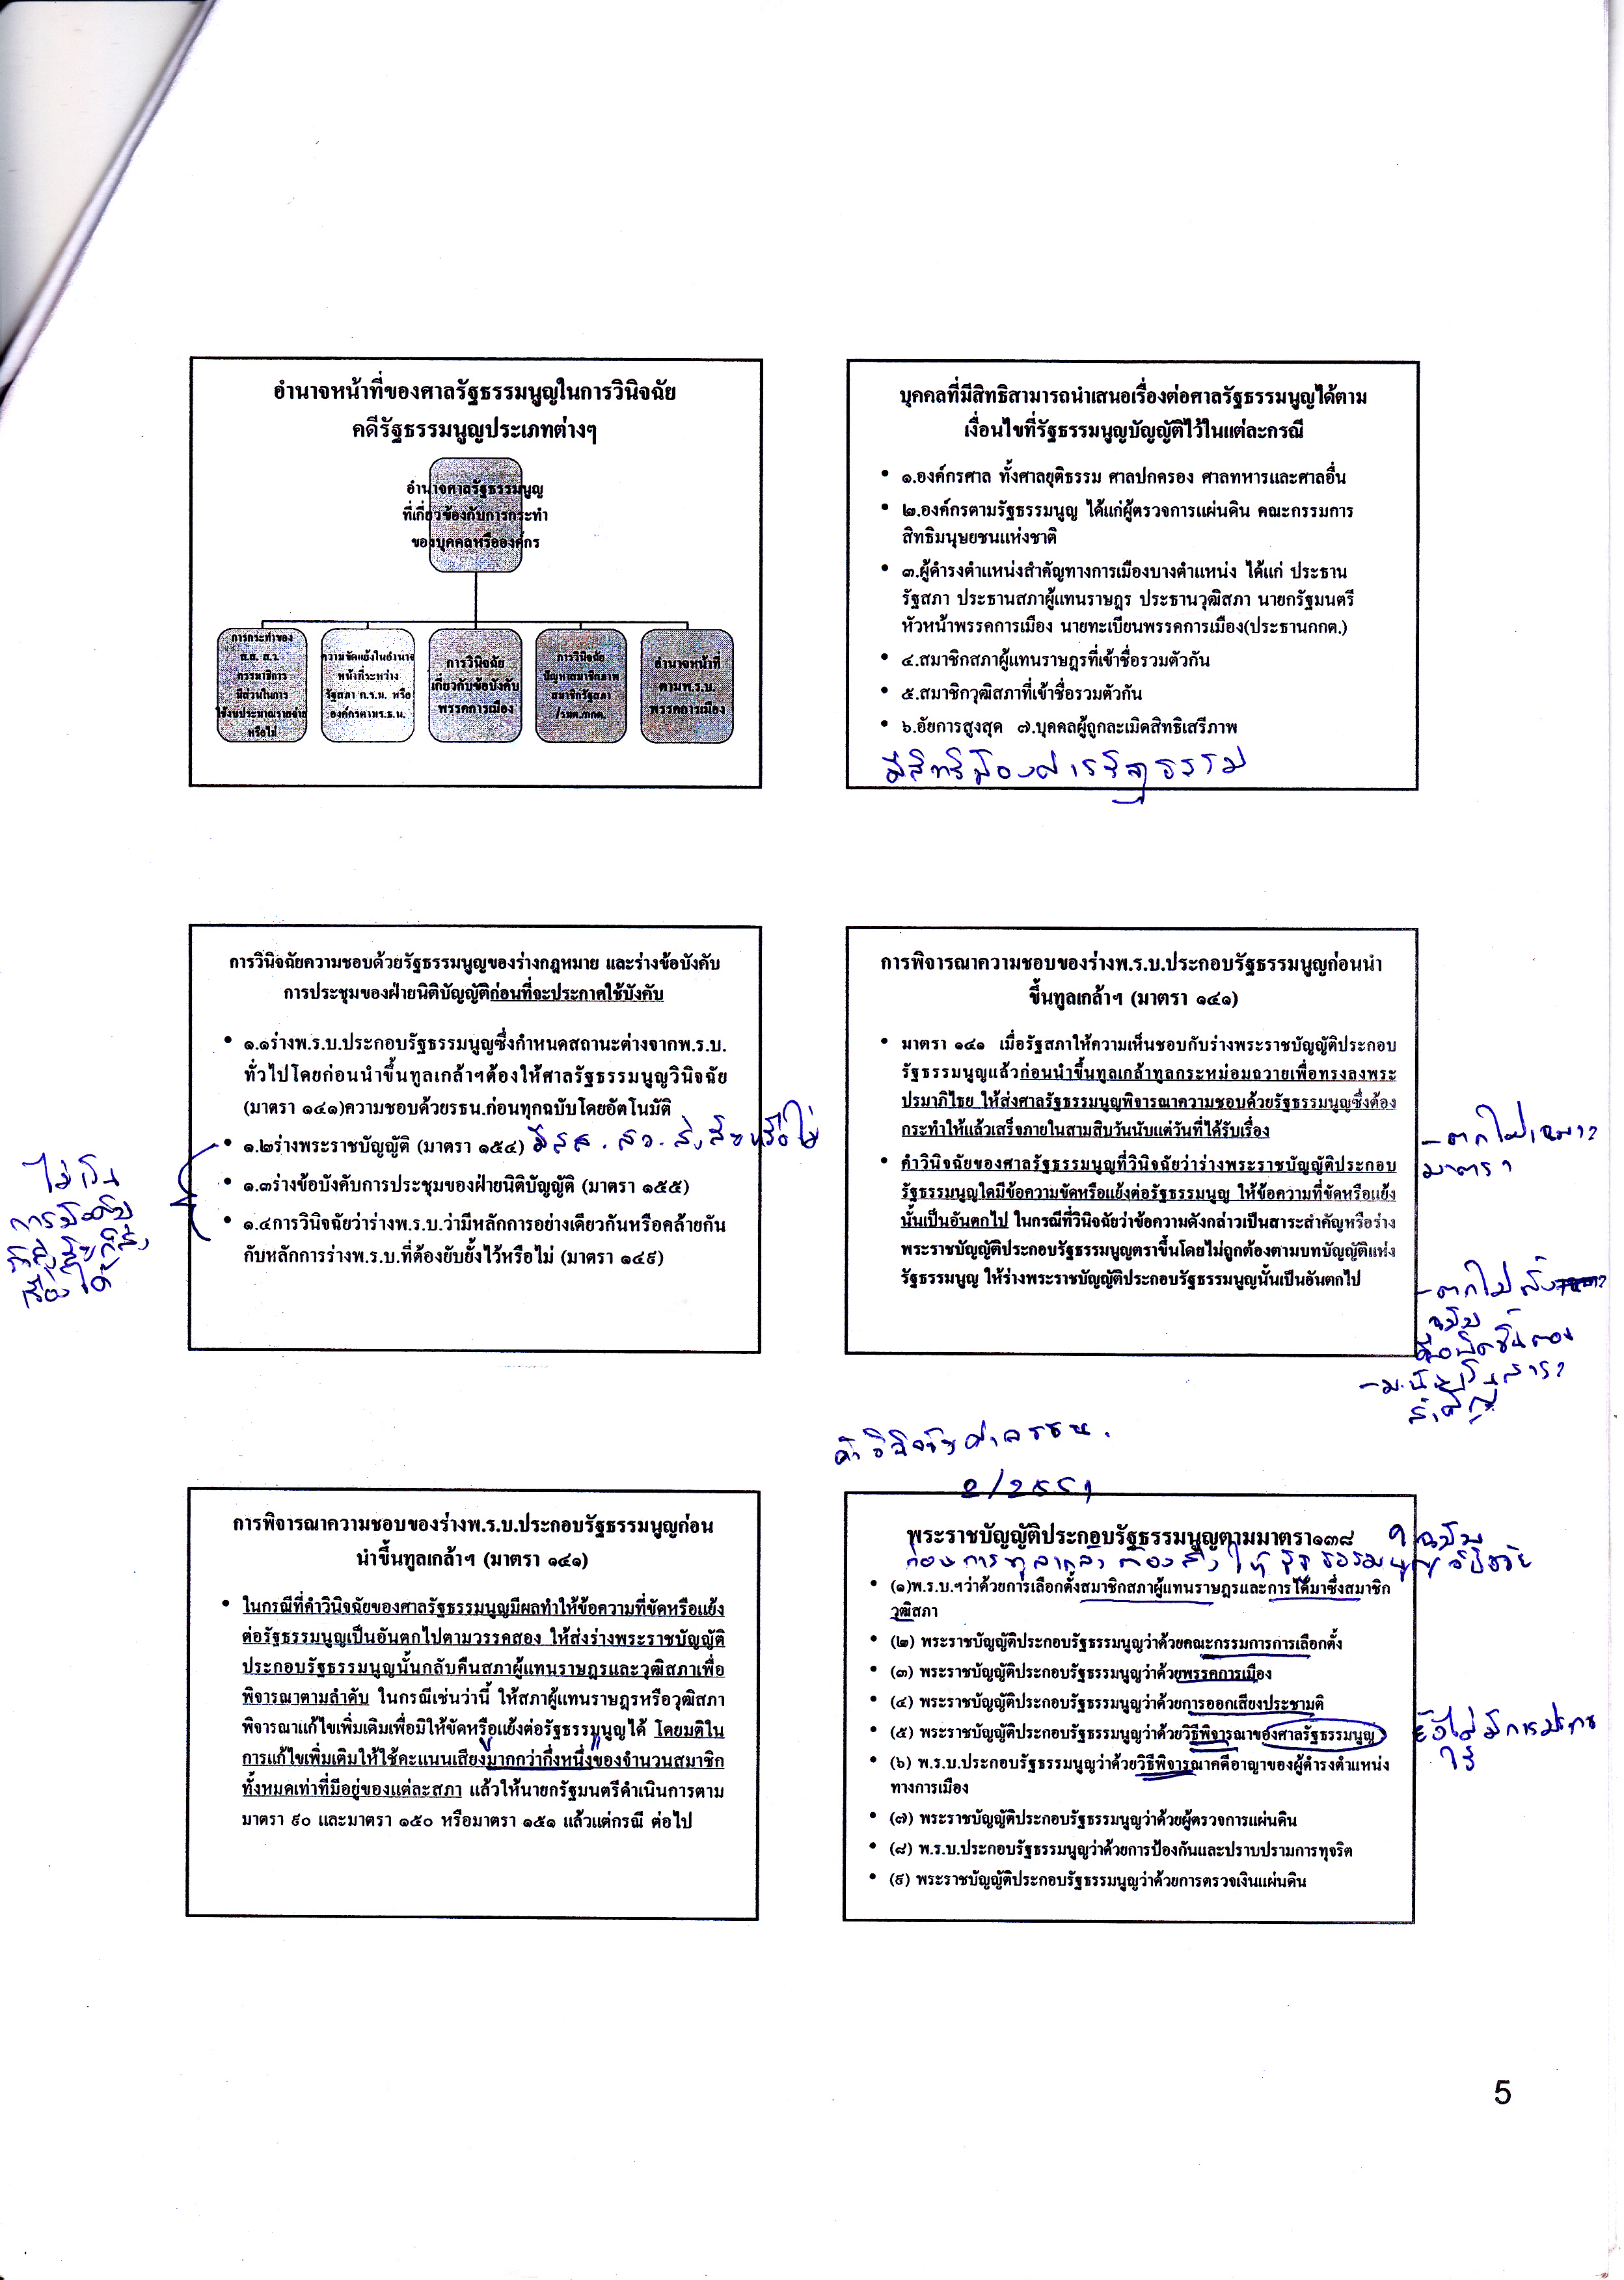 อำนาจหน้าที่ของศาลรัฐธรรมนูญในการวินิจฉัย
คดีรัฐธรรมนูญประเภทต่างๆ
อำนาจศาลรัฐธรรมนูญ
ที่เกี่ยวข้องกับการกระทำ
ของบุคคลหรือองค์กร
การกระทำของ
ส.ส. ส.ว.
กรรมาธิการ
มีส่วนในการ
ใช้งบประมาณรายจ่าย
หรือไม่
ความขัดแย้งในอำนาจ
หน้าที่ระหว่าง
รัฐสภา ค.ร.ม. หรือ
องค์กรตามร.ธ.น.
การวินิจฉัย
เกี่ยวกับข้อบังคับ
พรรคการเมือง
การวินิจฉัย
ปัญหาสมาชิกภาพ
สมาชิกรัฐสภา
/รมต./กกต.
อำนาจหน้าที่
ตามพ.ร.บ.
พรรคการเมือง
บุคคลที่มีสิทธิสามารถนำเสนอเรื่องต่อศาลรัฐธรรมนูญได้ตาม
เงื่อนไขที่รัฐธรรมนูญบัญญัติไว้ในแต่ละกรณี
• ๑.องค์กรศาล ทั้งศาลยุติธรรม ศาลปกครอง ศาลทหารและศาลอื่น
• ๒.องค์กรตามรัฐธรรมนูญ ได้แก่ผู้ตรวจการแผ่นดิน คณะกรรมการ
สิทธิมนุษยชนแห่งชาติ
• ๓.ผู้ดำรงตำแหน่งสำคัญทางการเมืองบางตำแหน่ง ได้แก่ ประธาน
รัฐสภา ประธานสภาผู้แทนราษฎร ประธานวุฒิสภา นายกรัฐมนตรี
หัวหน้าพรรคการเมือง นายทะเบียนพรรคการเมือง(ประธานกกต.)
• ๔.สมาชิกสภาผู้แทนราษฎรที่เข้าชื่อรวมตัวกัน
• ๕.สมาชิกวุฒิสภาที่เข้าชื่อรวมตัวกัน
• ๖.อัยการสูงสุด ๗.บุคคลผู้ถูกละเมิดสิทธิเสรีภาพ
มีสิทธิฟ้องศาลรัฐธรรม
การวินิจฉัยความชอบด้วยรัฐธรรมนูญของร่างกฎหมาย และร่างข้อบังคับ
การประชุมของฝ่ายนิติบัญญัติก่อนที่จะประกาศใช้บังคับ
• ๑.๑ร่างพ.ร.บ.ประกอบรัฐธรรมนูญซึ่งกำหนดสถานะต่างจากพ.ร.บ.
ทั่วไปโดยก่อนนำขึ้นทูลเกล้าฯต้องให้ศาลรัฐธรรมนูญวินิจฉัย
(มาตรา ๑๔๑)ความชอบด้วยรธน.ก่อนทุกฉบับโดยอัตโนมัติ
• ๑.๒ร่างพระราชบัญญัติ (มาตรา ๑๕๔) มี สส. สว. สงสัยหรือไม่
• ๑.๓ร่างข้อบังคับการประชุมของฝ่ายนิติบัญญัติ (มาตรา ๑๕๕)
• ๑.๔การวินิจฉัยว่าร่างพ.ร.บ.ว่ามีหลักการอย่างเดียวกันหรือคล้ายกัน
กับหลักการร่างพ.ร.บ.ที่ต้องยับยั้งไว้หรือไม่ (มาตรา ๑๔๙)
ไม่เป็น
การบังคับ
ถ้าสงสัยก็ส่ง
เรื่องได้
การพิจารณาความชอบของร่างพ.ร.บ.ประกอบรัฐธรรมนูญก่อนนำ
ขึ้นทูลเกล้าฯ (มาตรา ๑๔๑)
• มาตรา ๑๔๑ เมื่อรัฐสภาให้ความเห็นชอบกับร่างพระราชบัญญัติประกอบ
รัฐธรรมนูญแล้วก่อนนำขึ้นทูลเกล้าทูลกระหม่อมถวายเพื่อทรงลงพระ
ปรมาภิไธย ให้ส่งศาลรัฐธรรมนูญพิจารณาความชอบด้วยรัฐธรรมนูญซึ่งต้อง
กระทำให้แล้วเสร็จภายในสามสิบวันนับแต่วันที่ได้รับเรื่อง
• คำวินิจฉัยของศาลรัฐธรรมนูญที่วินิจฉัยว่าร่างพระราชบัญญัติประกอบ
รัฐธรรมนูญใดมีข้อความขัดหรือแย้งต่อรัฐธรรมนูญ ให้ข้อความที่ขัดหรือแย้ง
นั้นเป็นอันตกไป ในกรณีที่วินิจฉัยว่าข้อความดังกล่าวเป็นสาระสำคัญหรือร่าง
พระราชบัญญัติประกอบรัฐธรรมนูญตราขึ้นโดยไม่ถูกต้องตามบทบัญญัติแห่ง
รัฐธรรมนูญ ให้ร่างพระราชบัญญัติประกอบรัฐธรรมนูญนั้นเป็นอันตกไป
- ตกไปเฉพาะ
มาตรา
- ตกไปทั้ง
ฉบับ
คือผิดขั้นตอน
- ม.นั้นเป็นสาระ
สำคัญ
การพิจารณาความชอบของร่างพ.ร.บ.ประกอบรัฐธรรมนูญก่อน
นำขึ้นทูลเกล้าฯ (มาตรา ๑๔๑)
• ในกรณีที่คำวินิจฉัยของศาลรัฐธรรมนูญมีผลทำให้ข้อความที่ขัดหรือแย้ง
ต่อรัฐธรรมนูญเป็นอันตกไปตามวรรคสอง ให้ส่งร่างพระราชบัญญัติ
ประกอบรัฐธรรมนูญนั้นกลับคืนสภาผู้แทนราษฎรและวุฒิสภาเพื่อ
พิจารณาตามลำดับ ในกรณีเช่นว่านี้ ให้สภาผู้แทนราษฎรหรือวุฒิสภา
พิจารณาแก้ไขเพิ่มเติมเพื่อมิให้ขัดหรือแย้งต่อรัฐธรรมนูญได้ โดยมติใน
การแก้ไขเพิ่มเติมให้ใช้คะแนนเสียงมากกว่ากึ่งหนึ่งของจำนวนสมาชิก
ทั้งหมดเท่าที่มีอยู่ของแต่ละสภา แล้วให้นายกรัฐมนตรีดำเนินการตาม
มาตรา ๙๐ และมาตรา ๑๕๐ หรือมาตรา ๑๕๑ แล้วแต่กรณี ต่อไป
คำวินิจฉัยศาลรธน.
2/2551
พระราชบัญญัติประกอบรัฐธรรมนูญตามมาตรา๑๓๘ ๙ ฉบับ
ก่อนการทูลเกล้าต้องส่งให้รัฐธรรมนูญวินิจฉัย
• (๑)พ.ร.บ.ฯว่าด้วยการเลือกตั้งสมาชิกสภาผู้แทนราษฎรและการได้มาซึ่งสมาชิก
วุฒิสภา
• (๒) พระราชบัญญัติประกอบรัฐธรรมนูญว่าด้วยคณะกรรมการการเลือกตั้ง
• (๓) พระราชบัญญัติประกอบรัฐธรรมนูญว่าด้วยพรรคการเมือง
• (๔) พระราชบัญญัติประกอบรัฐธรรมนูญว่าด้วยการออกเสียงประชามติ
• (๕) พระราชบัญญัติประกอบรัฐธรรมนูญว่าด้วยวิธีพิจารณาของศาลรัฐธรรมนูญ
ยังไม่มีการประกาศ
ใช้
• (๖) พ.ร.บ.ประกอบรัฐธรรมนูญว่าด้วยวิธีพิจารณาคดีอาญาของผู้ดำรงตำแหน่ง
ทางการเมือง
• (๗) พระราชบัญญัติประกอบรัฐธรรมนูญว่าด้วยผู้ตรวจการแผ่นดิน
• (๘) พ.ร.บ.ประกอบรัฐธรรมนูญว่าด้วยการป้องกันและปราบปรามการทุจริต
• (๙) พระราชบัญญัติประกอบรัฐธรรมนูญว่าด้วยการตรวจเงินแผ่นดิน
5